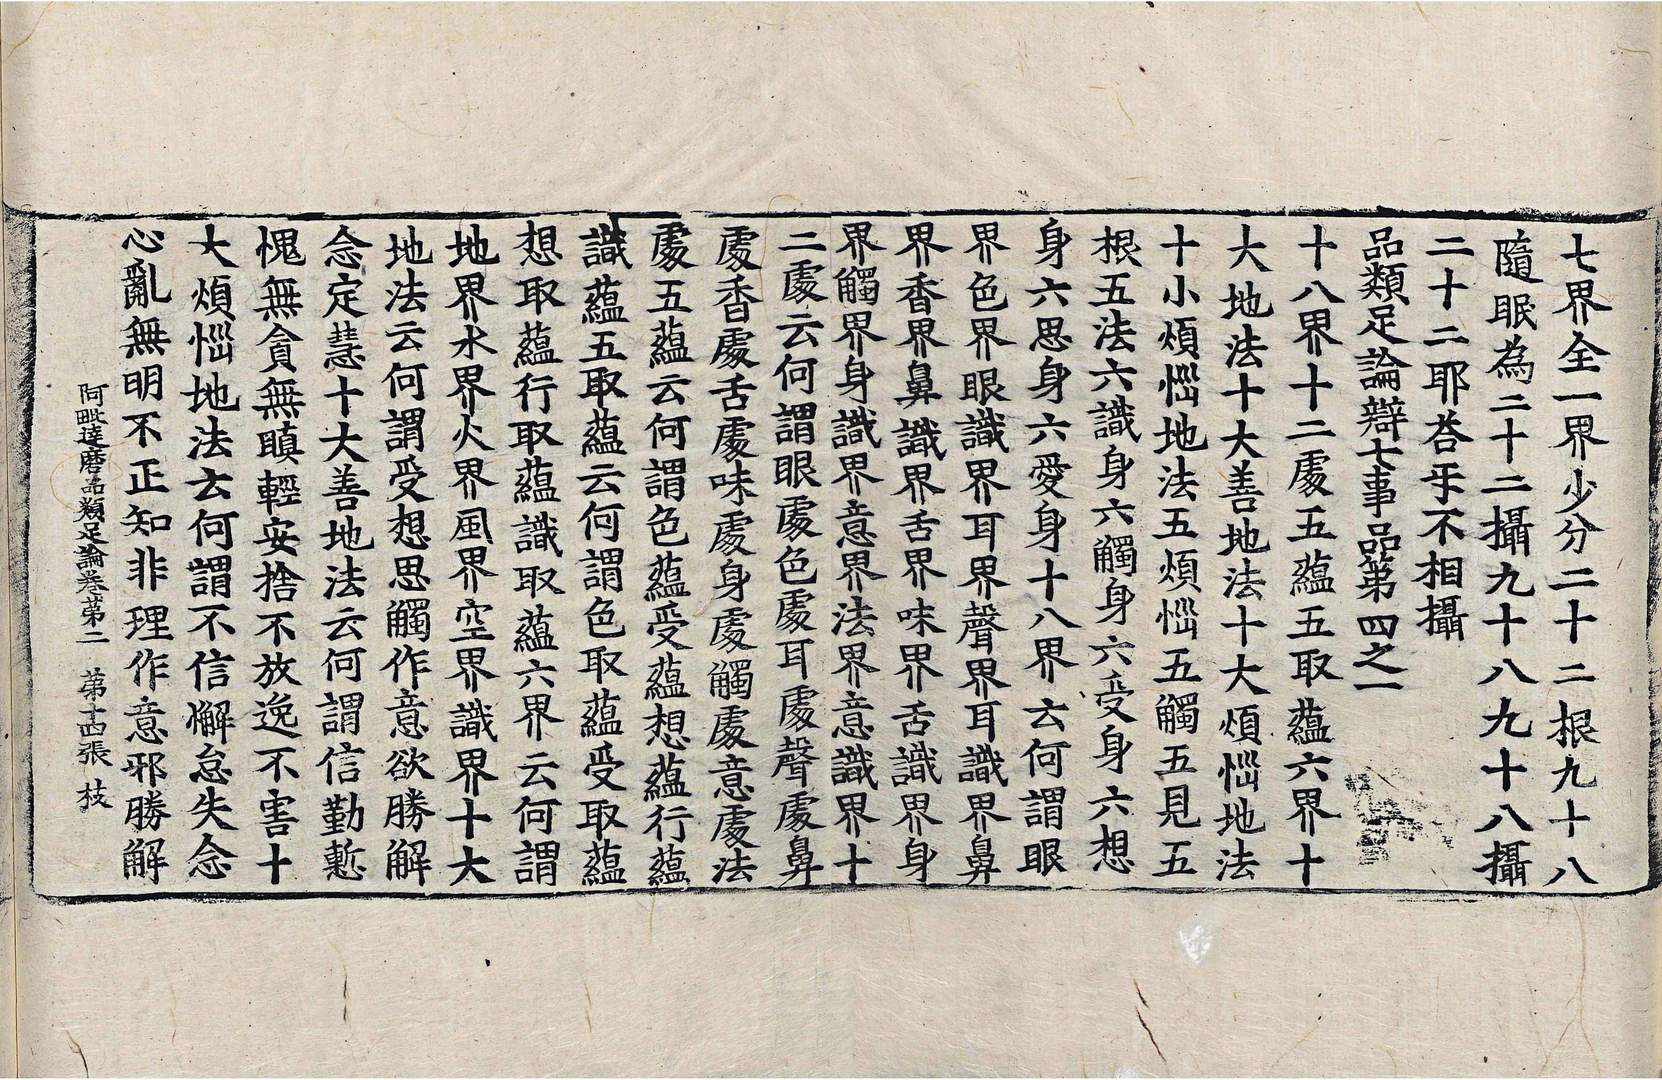 七界全一界少分二十二根九十八
隨眠為二十二攝九十八九十八攝
二十二耶荅乎不相攝
品類足論辯七事品第四之一
十八界十二處五蘊五取蘊六界十
大地法十大善地法十大煩惱地法
十小煩惱地法五煩惱五觸五見五
根五法六識身六觸身六受身六想
身六思身六愛身十八界云何謂眼
界色界眼識界耳界聲界耳識界鼻
界香界鼻識界舌界味界舌識界身
界觸界身識界意界法界意識界十
二處云何謂眼處色處耳處聲處鼻
處香處舌處味處身處觸處意處法
處五蘊云何謂色蘊受蘊想蘊行蘊
識蘊五取蘊云何謂色取蘊受取蘊
想取蘊行取蘊識取蘊六界云何謂
地界水界火界風界空界識界十大
地法云何謂受想思觸作意欲勝解
念定慧十大善地法云何謂信勤慙
愧無貪無瞋輕安捨不放逸不害十
大煩惱地法云何謂不信懈怠失念
心亂無明不正知非理作意邪勝解
阿毗達磨品類足論卷第二　第十四張　枝